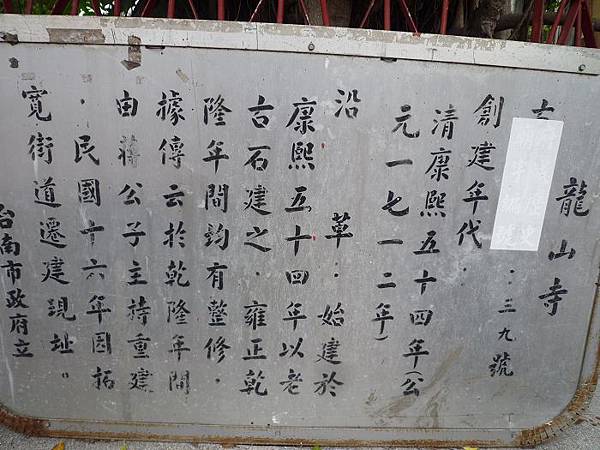 龍山寺
：三九號
創建年代．
清康熙五十四年（公
元一七一二年）
沿 革：始建於
康熙五十四年以老
古石建之．雍正乾
隆年間鈞有整修．
據傳云於乾隆年間
由蔣公子主持重建
．民國十六年因拓
寬街道遷建現址。
台南市政府立